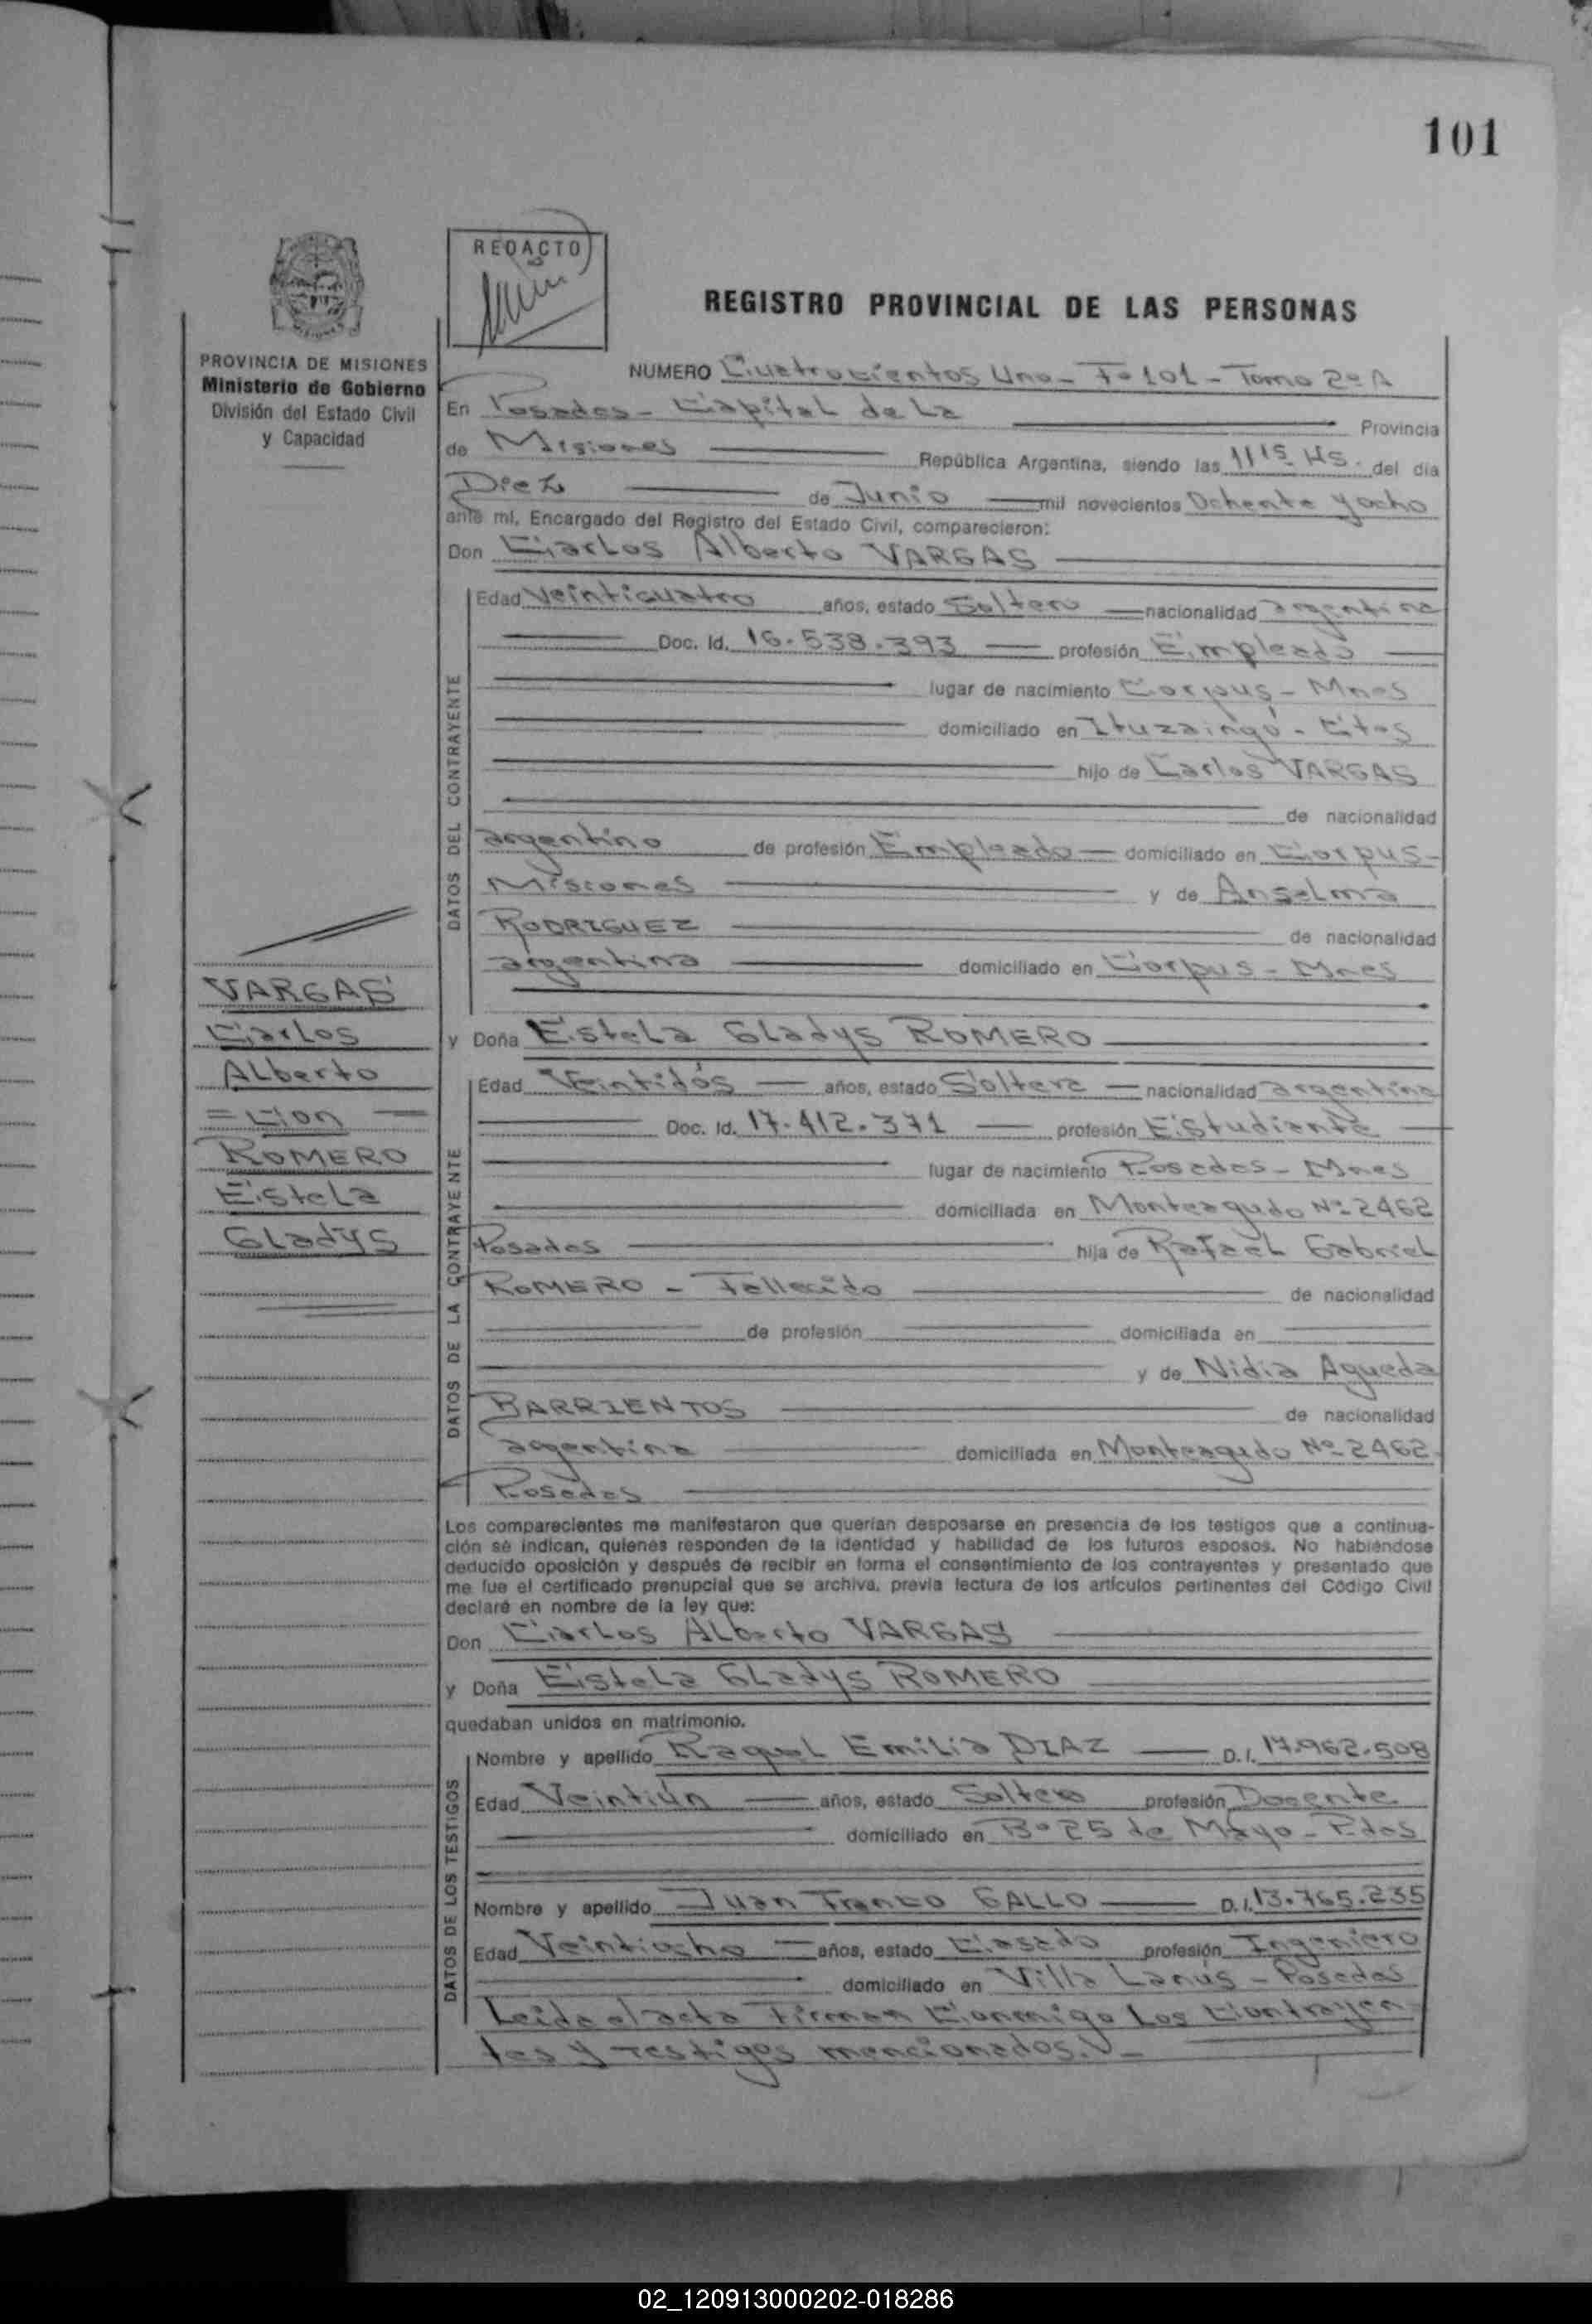 101
REDACTO
REGISTRO PROVINCIAL DE LAS PERSONAS
PROVINCIA DE MISIONES
Ministerio de Gobierno
División del Estado Civil
y Capacidad
NUMERO Cuatrocientos Uno - Fº 101 - Tomo 2º A
En Posadas - Capital de La Provincia
de Misiones República Argentina, siendo las 11 15 Hs. del día
Diez de Junio mil novecientos Ochenta y ocho
ante mí, Encargado del Registro del Estado Civil, comparecieron:
Don Carlos Alberto VARGAS
DATOS DEL CONTRAYENTE
Edad Veinticuatro años, estado Soltero nacionalidad argentina
Doc. Id. 16.538.393 profesión Empleado
lugar de nacimiento Corpus - Mnes
domiciliado en Ituzaingó - Ctes
hijo de Carlos VARGAS
de nacionalidad
argentino de profesión Empleado domiciliado en Corpus -
Misiones y de Anselma
RODRIGUEZ de nacionalidad
argentina domiciliado en Corpus - Mnes
VARGAS
Carlos
Alberto
= Con =
ROMERO
Estela
Gladys
y Doña Estela Gladys ROMERO
DATOS DE LA CONTRAYENTE
Edad Veintidós años, estado Soltera nacionalidad argentina
Doc. Id. 17.412.371 profesión Estudiante
lugar de nacimiento Posadas - Mnes
domiciliada en Monteagudo Nº 2462
Posadas hija de Rafael Gabriel
ROMERO - Fallecido de nacionalidad
de profesión domiciliada en
y de Nidia Agueda
BARRIENTOS de nacionalidad
argentina domiciliada en Monteagudo Nº 2462
Posadas
Los comparecientes me manifestaron que querían desposarse en presencia de los testigos que a continua-
ción se indican, quienes responden de la identidad y habilidad de los futuros esposos. No habiéndose
deducido oposición y después de recibir en forma el consentimiento de los contrayentes y presentado que
me fue el certificado prenupcial que se archiva, previa lectura de los artículos pertinentes del Código Civil
declaré en nombre de la ley que:
Don Carlos Alberto VARGAS
y Doña Estela Gladys ROMERO
quedaban unidos en matrimonio.
DATOS DE LOS TESTIGOS
Nombre y apellido Raquel Emilia DIAZ D.I. 17.962.508
Edad Veintiún años, estado Soltera profesión Docente
domiciliado en Bº 25 de Mayo - Pdas
Nombre y apellido Juan Franco GALLO D.I. 13.765.235
Edad Veintiocho años, estado Casado profesión Ingeniero
domiciliado en Villa Lanús - Posadas
Leída el acta Firman Conmigo Los Contrayen
tes y Testigos mencionados. -
02_120913000202-018286